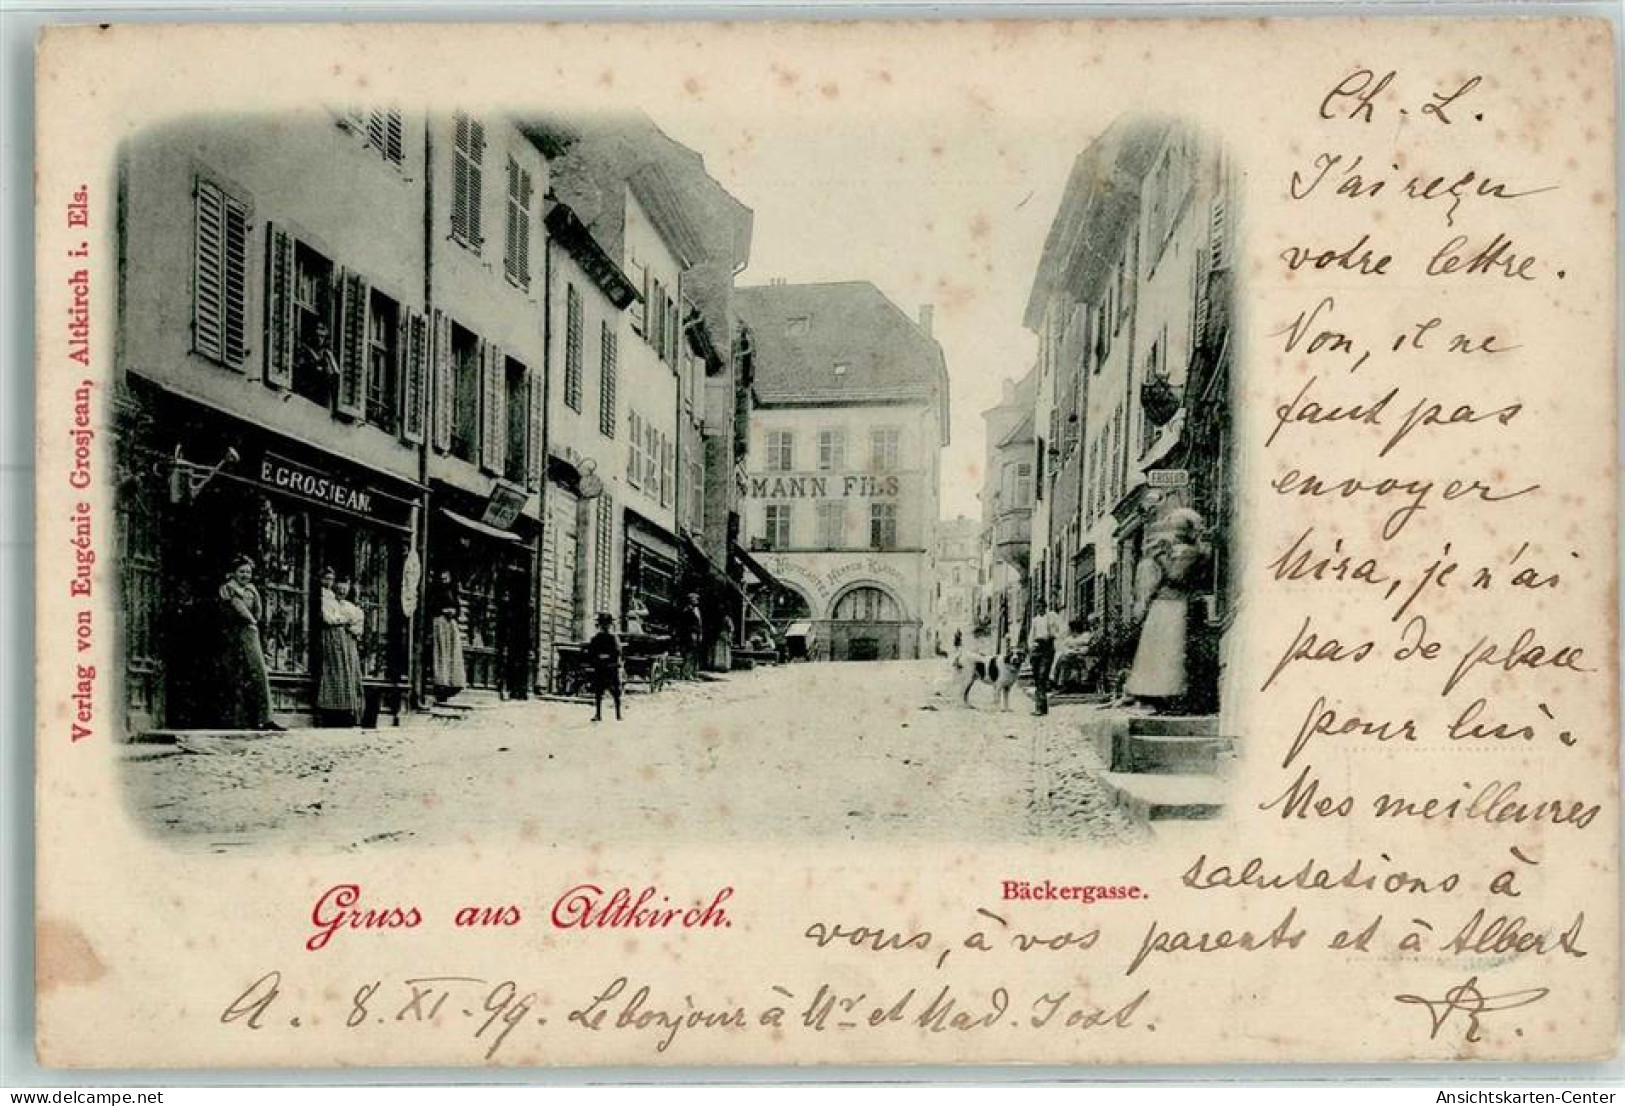 Verlag von Eugénie Grosjean, Altkirch i. Els.
E. GROSJEAN.
MANN FILS
FRISEUR
Gruss aus Altkirch.
Bäckergasse.
Ch. L.
J'ai reçu
votre lettre.
Non, il ne
faut pas
envoyer
Mira, je n'ai
pas de place
pour lui.
Mes meilleures
salutations à
vous, à vos parents et à Albert
A. 8. XI. 99. Le bonjour à Mr et Mad. Jost.
Ansichtskarten-Center